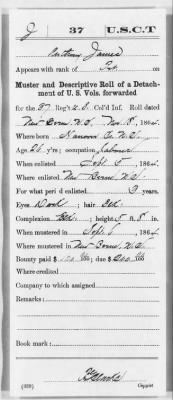 J | 37 | U.S.C.T
James
Appears with rank of Pvt. on
Muster and Descriptive Roll of a Detach-
ment of U. S. Vols. forwarded
for the 37 Reg't U.S. Col'd Inf. Roll dated
New Bern, N.C., Nov. 8, 1864.
Where born Hanover Co. N.C.
Age 26 y'rs; occupation Laborer
When enlisted Sept. 5, 1864.
Where enlisted New Bern, N.C.
For what period enlisted 3 years.
Eyes Dark; hair Blk.
Complexion Blk.; height 5 ft. 8 in.
When mustered in Sept. 5, 1864
Where mustered in New Bern, N.C.
Bounty paid $100; due $200
Where credited
Company to which assigned
Remarks:
Book mark:
(339)
Copyist